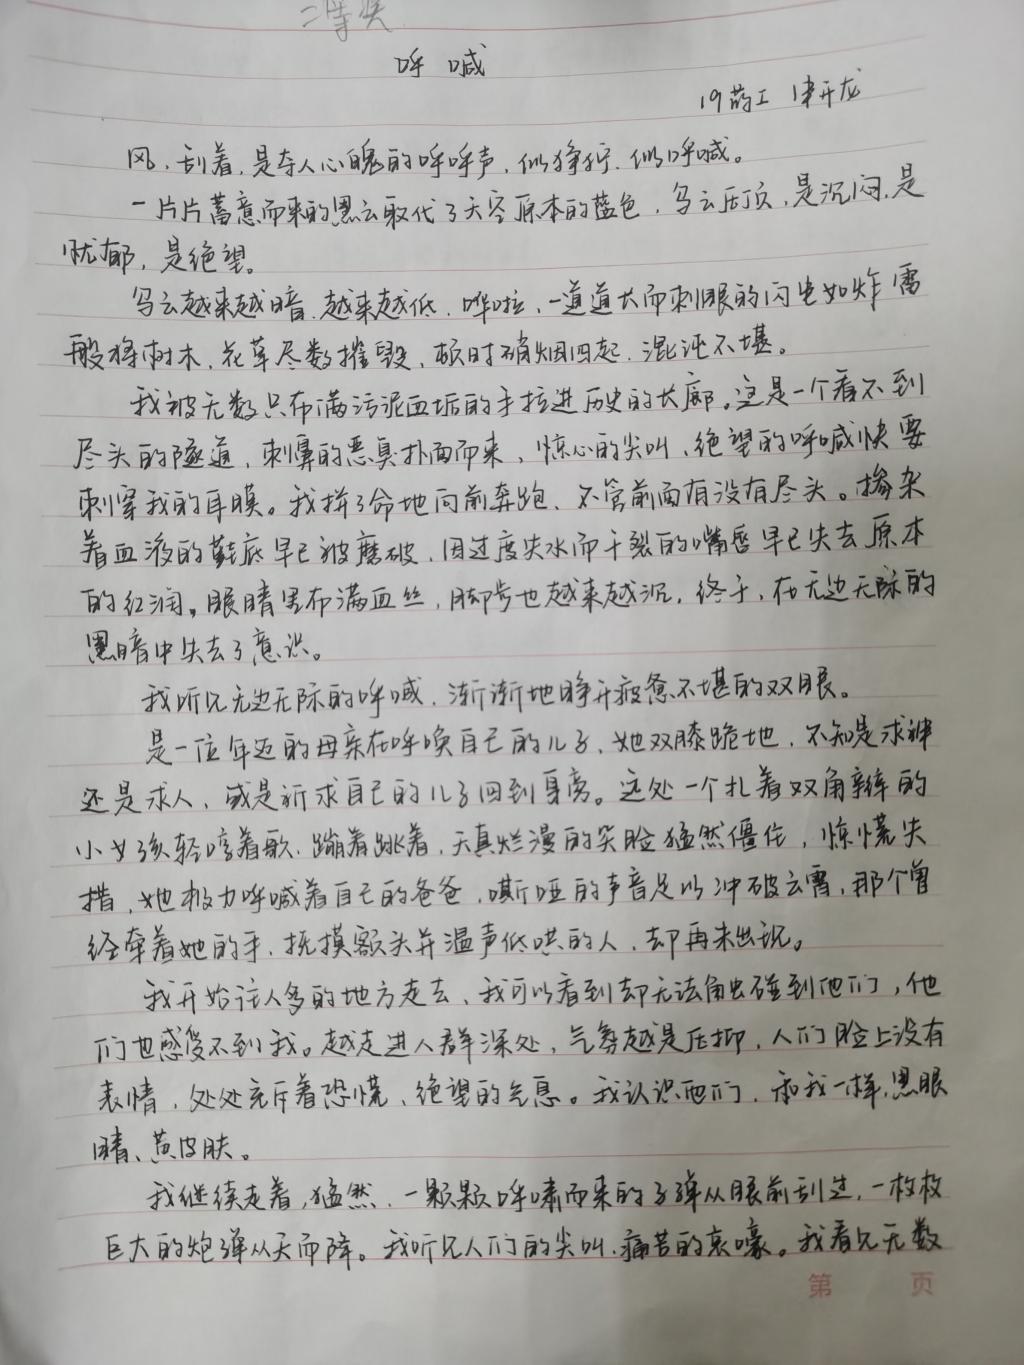 二等奖
呼喊
19药工 津开龙
风,刮着,是夺人心魄的呼呼声,似狰狞、似呼喊。
一片片蓄意而来的黑云取代了天空原本的蓝色,乌云压顶,是沉闷,是
忧郁,是绝望。
乌云越来越暗、越来越低,哗啦,一道道长而刺眼的闪电如炸雷
般将树木、花草尽数摧毁,顿时硝烟四起,混沌不堪。
我被无数只布满污泥血垢的手拉进历史的长廊。这是一个看不到
尽头的隧道,刺鼻的恶臭扑面而来,惊心的尖叫、绝望的呼喊快要
刺穿我的耳膜。我拼了命地向前奔跑、不管前面有没有尽头。掺杂
着血液的鞋底早已被磨破,因过度失水而干裂的嘴唇早已失去原本
的红润。眼睛里布满血丝,脚步也越来越沉,终于,在无边无际的
黑暗中失去了意识。
我听见无边无际的呼喊,渐渐地睁开疲惫不堪的双眼。
是一位年迈的母亲在呼唤自己的儿子,她双膝跪地,不知是求神
还是求人,或是祈求自己的儿子回到身旁。远处一个扎着双角辫的
小女孩轻哼着歌、蹦着跳着,天真烂漫的笑脸猛然僵住,惊慌失
措,她极力呼喊着自己的爸爸,嘶哑的声音足以冲破云霄,那个曾
经牵着她的手,抚摸额头并温声低哄的人,却再未出现。
我开始往人多的地方走去,我可以看到却无法触碰到他们,他
们也感受不到我。越走进人群深处,气氛越是压抑,人们脸上没有
表情,处处充斥着恐慌、绝望的气息。我认识他们,和我一样,黑眼
睛、黄皮肤。
我继续走着,猛然,一颗颗呼啸而来的子弹从眼前刮过,一枚枚
巨大的炮弹从天而降。我听见人们的尖叫、痛苦的哀嚎。我看见无数
第 页